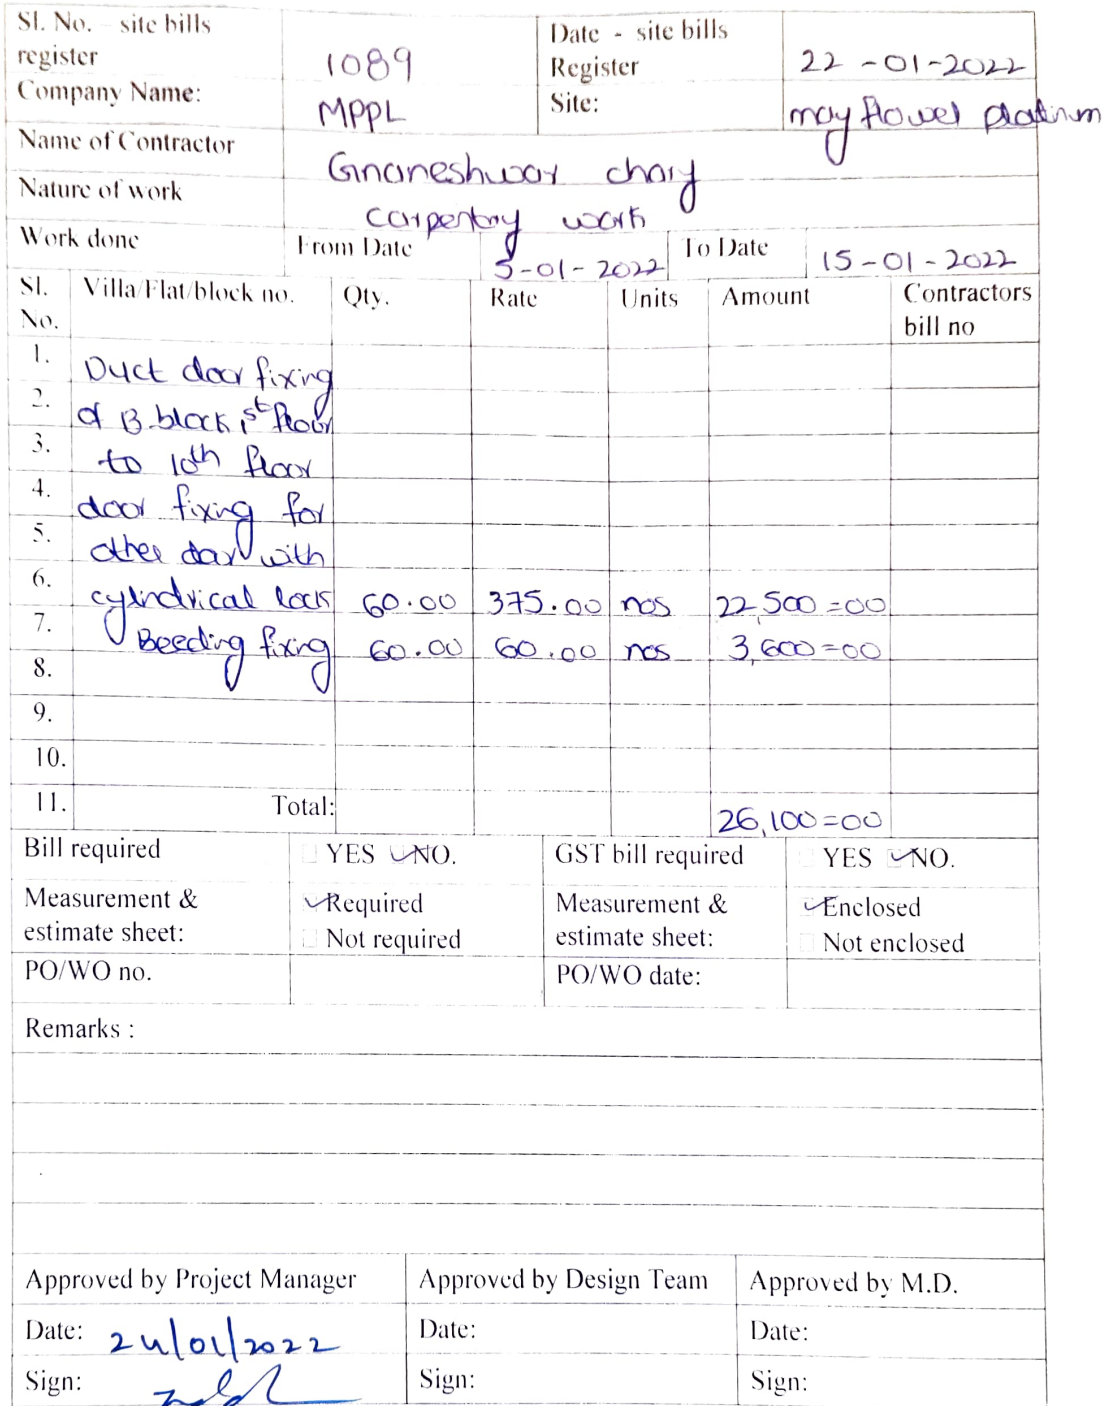 Sl. No. – site bills register 1089 Date - site bills Register 22-01-2022
Company Name: MPPL Site: may flower platinum
Name of Contractor Gnaneshwar chary
Nature of work carpentry work
Work done From Date 5-01-2022 To Date 15-01-2022
Sl. No. Villa/Flat/block no. Qty. Rate Units Amount Contractors bill no
1. Duct door fixing
2. of B-block 1st floor
3. to 10th floor
4. door fixing for
5. other door with
6. cylindrical lock 60.00 375.00 nos 22,500=00
7. Beeding fixing 60.00 60.00 nos 3,600=00
8.
9.
10.
11. Total: 26,100=00
Bill required YES NO. GST bill required YES NO.
Measurement & estimate sheet: Required Not required Measurement & estimate sheet: Enclosed Not enclosed
PO/WO no. PO/WO date:
Remarks :
Approved by Project Manager Approved by Design Team Approved by M.D.
Date: 24/01/2022 Date: Date:
Sign: Sign: Sign: